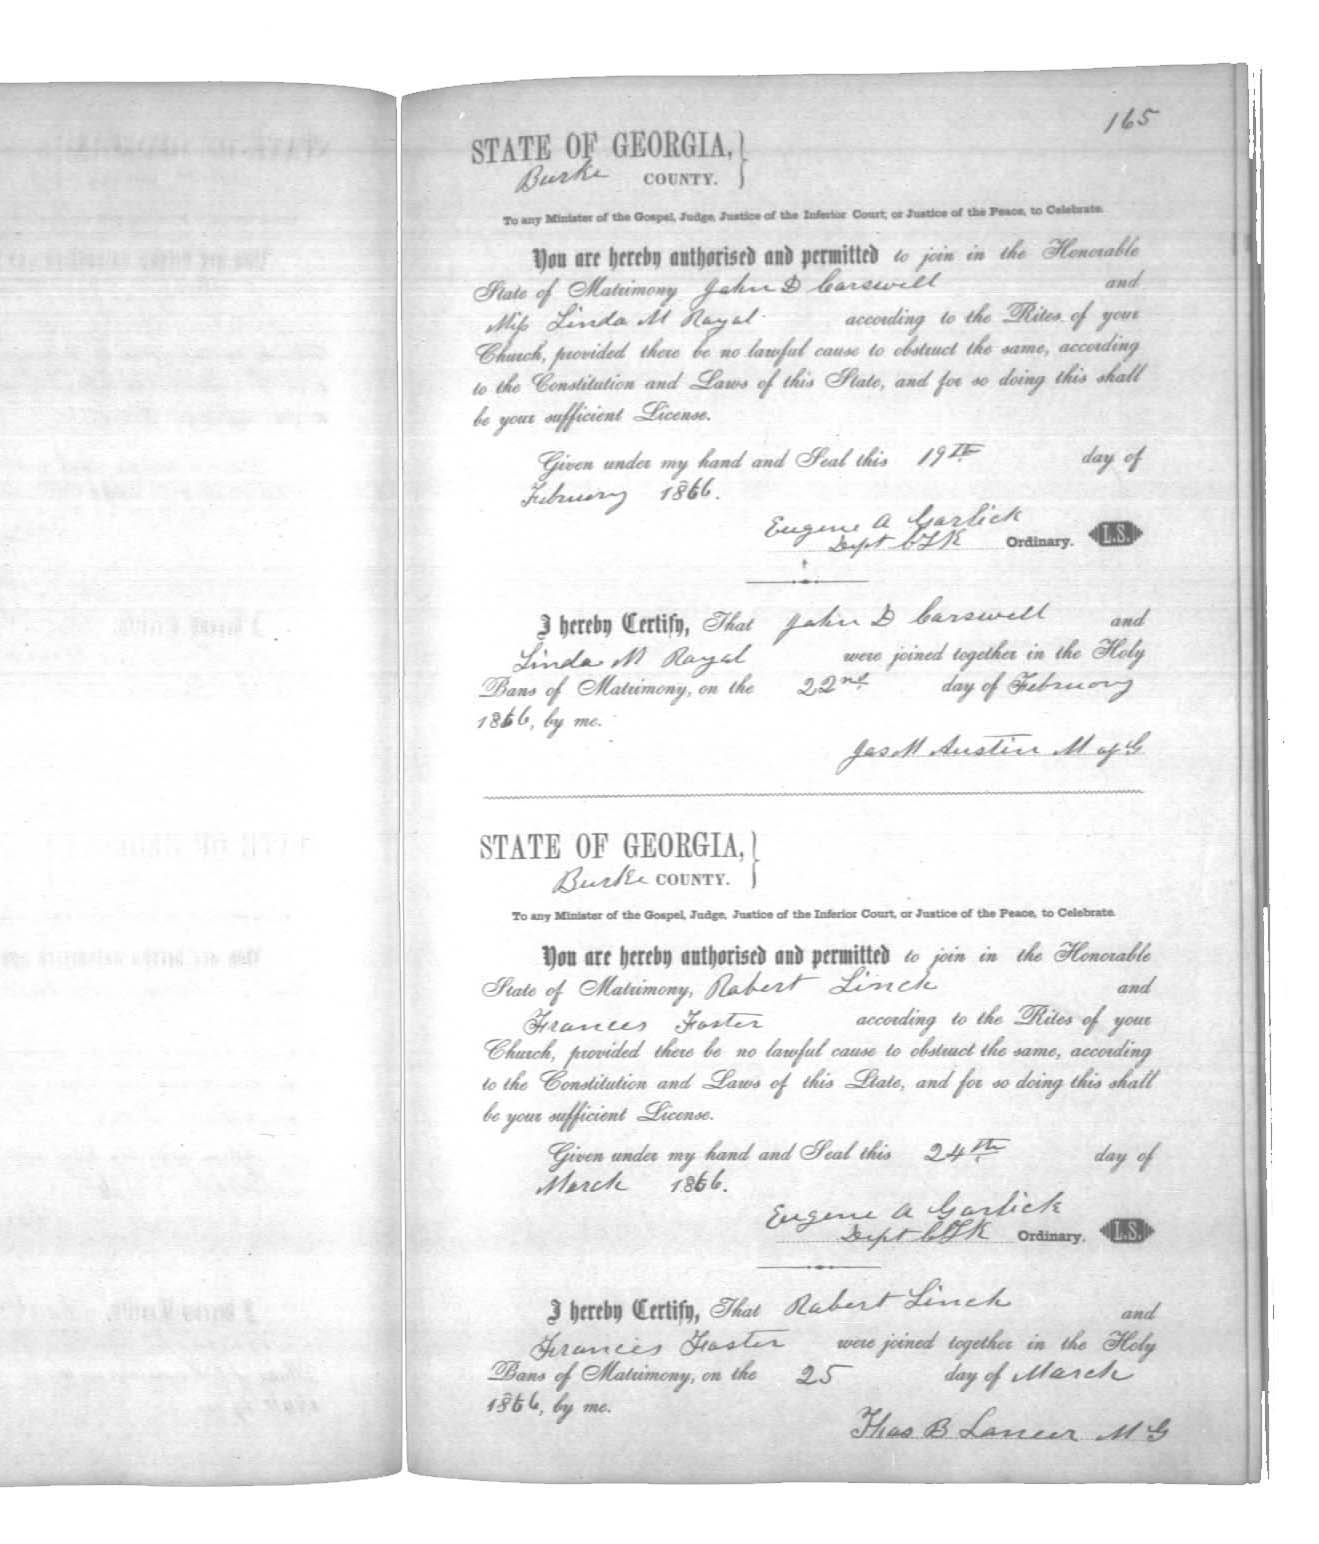 165
STATE OF GEORGIA,
Burke COUNTY.
To any Minister of the Gospel, Judge, Justice of the Inferior Court, or Justice of the Peace, to Celebrate.
You are hereby authorised and permitted to join in the Honorable
State of Matrimony John D Carswell and
Miss Linda M Royal according to the Rites of your
Church, provided there be no lawful cause to obstruct the same, according
to the Constitution and Laws of this State, and for so doing this shall
be your sufficient License.
Given under my hand and Seal this 19th day of
February 1866.
Eugene A Garlick
Dept ClK Ordinary. L.S.
I hereby Certify, That John D Carswell and
Linda M Royal were joined together in the Holy
Bans of Matrimony, on the 22nd day of February
1866, by me.
Jas M Austin M of G
STATE OF GEORGIA,
Burke COUNTY.
To any Minister of the Gospel, Judge, Justice of the Inferior Court, or Justice of the Peace, to Celebrate.
You are hereby authorised and permitted to join in the Honorable
State of Matrimony, Robert Linch and
Frances Foster according to the Rites of your
Church, provided there be no lawful cause to obstruct the same, according
to the Constitution and Laws of this State, and for so doing this shall
be your sufficient License.
Given under my hand and Seal this 24th day of
March 1866.
Eugene A Garlick
Dept ClK Ordinary. L.S.
I hereby Certify, That Robert Linch and
Frances Foster were joined together in the Holy
Bans of Matrimony, on the 25 day of March
1866, by me.
Thos B Lanier M G